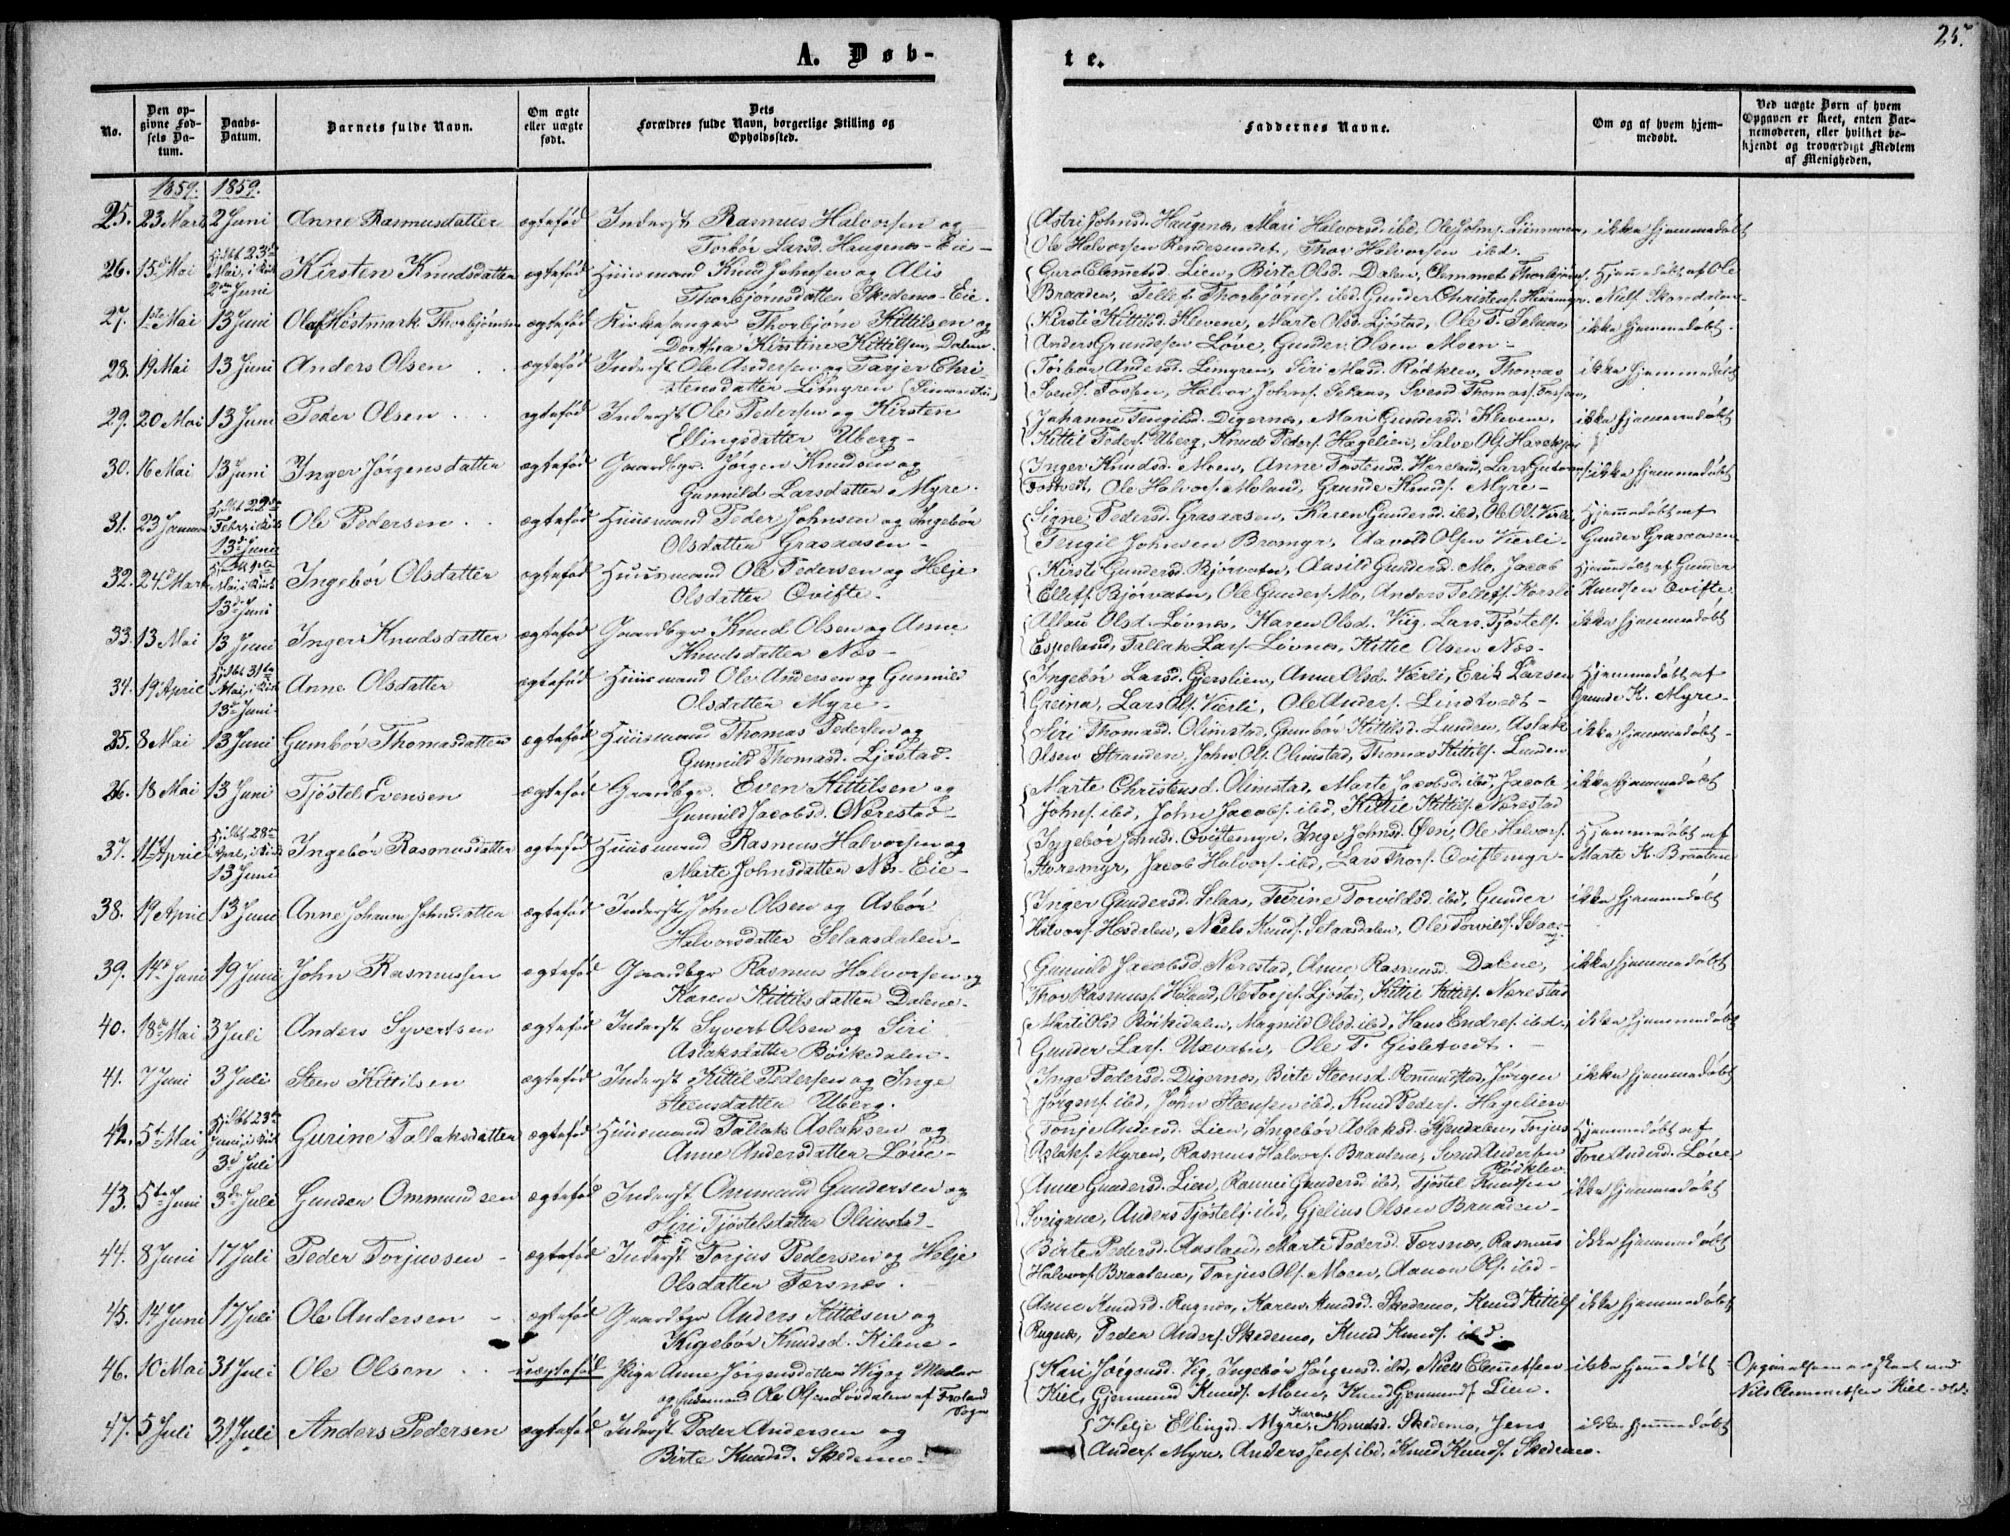 25.
A. Døb-
te.
No.
Den op-
givne Fød-
sels Da-
tum.
Daabs-
Datum.
Barnets fulde Navn.
Om ægte
eller uægte
født.
Dets
Forældres fulde Navn, borgerlige Stilling og
Opholdssted.
Faddernes Navne.
Om og af hvem hjem-
medøbt.
Ved uægte Børn af hvem
Opgaven er skeet, enten Bar-
nemoderen, eller hvilket be-
kjendt og troværdigt Medlem
af Menigheden.
1859. 1859.
25. 23 Marts 2 Juni Anne Rasmusdatter ægtefød Inderst Rasmus Halvorsen og
Torbør Larsd. Haugenes-Eie-
Astri Johnsd. Haugenes, Mari Halvorsd ibd, Ole Johns.
Ole Halvorsen Rindesundet, Thor Halvorsen ibd.
ikke hjemmedøbt
26. 15de Mai Hjdbt 23de
Mai, i Kirk
2den Juni
Kirsten Knudsdatter ægtefød Huusmand Knud Johnsen og Alis
Thorbjørnsdatter Skedemo-Eie.
Guro Clemetsd. Lien, Birte Olsd. Dalen, Clemmet Thorbjørns.
Braaden, Tellef Thorbjørns. ibd. Gunder Christens.
Hjemmedøbt af Ole
27. 1ste Mai 13 Juni Olaf Høstmark Thorbjørnsen ægtefød Kirkesanger Thorbjørn Kittilsen og
Dorthea Kirstine Kittilsen, Dalen.
Kirsti Kittilsd. Klevene, Marte Olsd. Ljøstad, Ole T. Selaas,
Anders Grundesen Løve, Gunder Olsen Moen-
ikke hjemmedøbt.
28. 19 Mai 13 Juni Anders Olsen ægtefød Inderst Ole Andersen og Tarjer Chri-
stensdatter Limyren
Torbør Andersd. Limyren, Siri Mad. Rødklev, Thomas
Svends. Fossen, Halvor Johns. Selaas, Svend Thomass. Fossen
ikke hjemmedøbt
29. 20 Mai 13 Juni Peder Olsen ægtefød Inderst Ole Pedersen og Kirsten
Ellingsdatter Uberg-
Johanne Tengilsd. Digernes, Mari Gundersd. Klevene,
Kittil Peders. Uberg, Knud Peders. Hagelien, Salve Ols.
ikke hjemmedøbt
30. 16 Mai 13 Juni Inger Jørgensdatter ægtefød Gaardbgr. Jørgen Knudsen og
Gunnild Larsdatter Myre.
Inger Knudsd. Moen, Anne Tostensd. Hereland, Lars
Tostvedt, Ole Halvors. Moland, Grunde Knuds. Myre-
ikke hjemmedøbt
31. 23 Januar Hjdbt 22de
Febr, i Kirk
13de Juni
Ole Pedersen ægtefød Huusmand Peder Johnsen og Ingebør
Olsdatter Grasaasen-
Signe Pedersd. Grasaasen, Karen Gundersd. ibd, Ole Ols. Vierli,
Tengil Johnsen Bromyr, Aavold Olsen Vierli-
Hjemmedøbt af
Gunder Grasaasen
32. 24de Marts Hjdbt 1ste
Mai, i Kirk
13de Juni
Ingebør Olsdatter ægtefød Huusmand Ole Pedersen og Helje
Olsdatter Qvifte.
Kirsti Gundersd. Bjørvatn, Aasild Gundersd. Mo, Jacob
Ellefs. Bjørvatn, Ole Gunders. Mo, Anders Tellefs.
Hjemmedøbt af Gunder
Knudsen Qvifte,
33. 13 Mai 13 Juni Inger Knudsdatter ægtefød Gaardbgr Knud Olsen og Anne
Knudsdatter Næs-
Olsd. Løvnes, Karen Olsd. Vig, Lars Tjøstels.
Espeland, Tallak Lars. Løvnes, Kittil Olsen Næs-
ikke hjemmedøbt
34. 19 April Hjdbt 31te
Mai, i Kirk
13de Juni
Anne Olsdatter ægtefød Huusmand Ole Andersen og Gunnild
Olsdatter Myre-
Ingebør Larsd. Gjerslien, Anne Olsd. Vierli, Erik Larsen
Greina, Lars Ols. Vierli, Ole Anders. Lindtvedt-
Hjemmedøbt af
Grunde K. Myre-
35. 8 Mai 13 Juni Gumbør Thomasdatter ægtefød Huusmand Thomas Pedersen og
Gunnild Thomasd. Ljøstad.
Siri Thomasd. Olimstad, Gumbør Kittilsd. Lunden, Aslak
Olsen Stranden, John Ols. Olimstad, Thomas Kittils. Lunden
ikke hjemmedøbt-
26. 18 Mai 13 Juni Tjøstel Evensen ægtefød Gaardbgr. Even Kittilsen og
Gunnild Jacobsd. Nærestad-
Marte Christensd. Olimstad, Marte Jacobsd. ibd, Jacob
Johns. ibd, John Jacobs. ibd, Kittil Kittils. Nærestad
ikke hjemmedøbt
37. 11te April Hjdbt 28de
April, i Kirk
13 Juni
Ingebør Rasmusdatter ægtefød Huusmand Rasmus Halvorsen og
Marte Johnsdatter Næs-Eie-
Ingebør Johnsd. Qviftemyr, Inge Johnsd. Øen, Ole Halvors.
Støremyr, Jacob Halvors. ibd, Lars Thors. Qviftemyr-
Hjemmedøbt af
Marte K. Braaten
38. 19 April 13 Juni Anne Johanne Johnsdatter ægtefød Inderst John Olsen og Asbør
Halvorsdatter Selaasdalen-
Inger Gundersd. Selaas, Turine Torvildsd. ibd, Gunder
Halvors. Hesdalen, Niels Knuds. Selaasdalen, Ole Torvilds. Selaas-
ikke hjemmedøbt
39. 14de Juni 19 Juni John Rasmussen ægtefød Gaardbgr Rasmus Halvorsen og
Karen Kittilsdatter Dalene-
Gunnild Jacobsd. Nærestad, Anne Rasmusd. Dalene,
Thor Rasmuss. Høland, Ole Torjes. Ljøstad, Kittil Kittils. Nærestad
ikke hjemmedøbt
40. 18de Mai 3 Juli Anders Syvertsen ægtefød Inderst Syvert Olsen og Siri
Aslaksdatter Bøikedalen.
Marti Olsd Bøikedalen, Magnild Olsd. ibd, Hans Endres. ibd.,
Gunder Lars. Uxvatn, Ole T. Gisletvedt.
ikke hjemmedøbt
41. 7 Juni 3 Juli Steen Kittilsen ægtefød Inderst Kittil Pedersen og Inge
Steensdatter Uberg.
Inge Pedersd. Digernes, Birte Steensd. Rommestad, Jørgen
Jørgens. ibd, John Steensen ibd. Knud Peders. Hagelien
ikke hjemmedøbt
42. 5te Mai Hjdbt 23de
Juni, i Kirk
3de Juli
Gurine Tallaksdatter ægtefød Huusmand Tallak Aslaksen og
Anne Andersdatter Løve-
Tonje Andersd. Lien, Ingebør Aslaksd. Stendalen, Torjus
Aslaks. Myren, Rasmus Halvors. Braatene, Svend Andersen
Rødklev.
Hjemmedøbt af
Tore Andersd. Løve
43. 5te Juni 3de Juli Gunder Ommundsen ægtefød Inderst Ommund Gundersen og
Siri Tjøstelsdatter Olimstad-
Anne Gundersd. Lien, Rannei Gundersd ibd, Tjøstel Knudsen
Anders Tjøstels. ibd, Gjelius Olsen Braaden-
ikke hjemmedøbt
44. 8 Juni 17 Juli Peder Torjussen ægtefød Inderst Torjus Pedersen og Helje
Olsdatter Førsnes.
Birte Pedersd. Aasland, Marte Pedersd. Førsnes, Rasmus
Halvors. Braatene, Torjus Ols. Moen, Aanon Ols. ibd-
ikke hjemmedøbt
45. 14 Juni 17 Juli Ole Andersen ægtefød Gaardbgr Anders Kittilsen og
Ingebør Knudsd. Kilene-
Anne Knudsd. Rugnes, Karen Knudsd. Skedemo, Knud Kittils.
Rugnes, Peder Anders. Skedemo, Knud Knuds. ibd.
ikke hjemmedøbt
46. 10 Mai 31 Juli Ole Olsen uægtefød Pige Anne Jørgensdatter Vig og
og Ole Olsen Lovdalen af Froland
Sogn
Kari Jørgensd. Vig, Ingebør Jørgensd. ibd, Niels Clemetsen
Kiel, Gjermund Knuds. Moen, Knud Gjermunds. Lien.
ikke hjemmedøbt
Opgivelsen er skeet ved
Nils Clemmetsen Kiel
47. 5 Juli 31 Juli Anders Pedersen ægtefød Inderst Peder Andersen og
Birte Knudsd. Skedemo-
Helje Ellingsd. Myre, Karen Knudsd. Skedemo, Jens
Anders. Myre, Anders Jens. ibd, Knud Knuds. Skedemo.
ikke hjemmedøbt